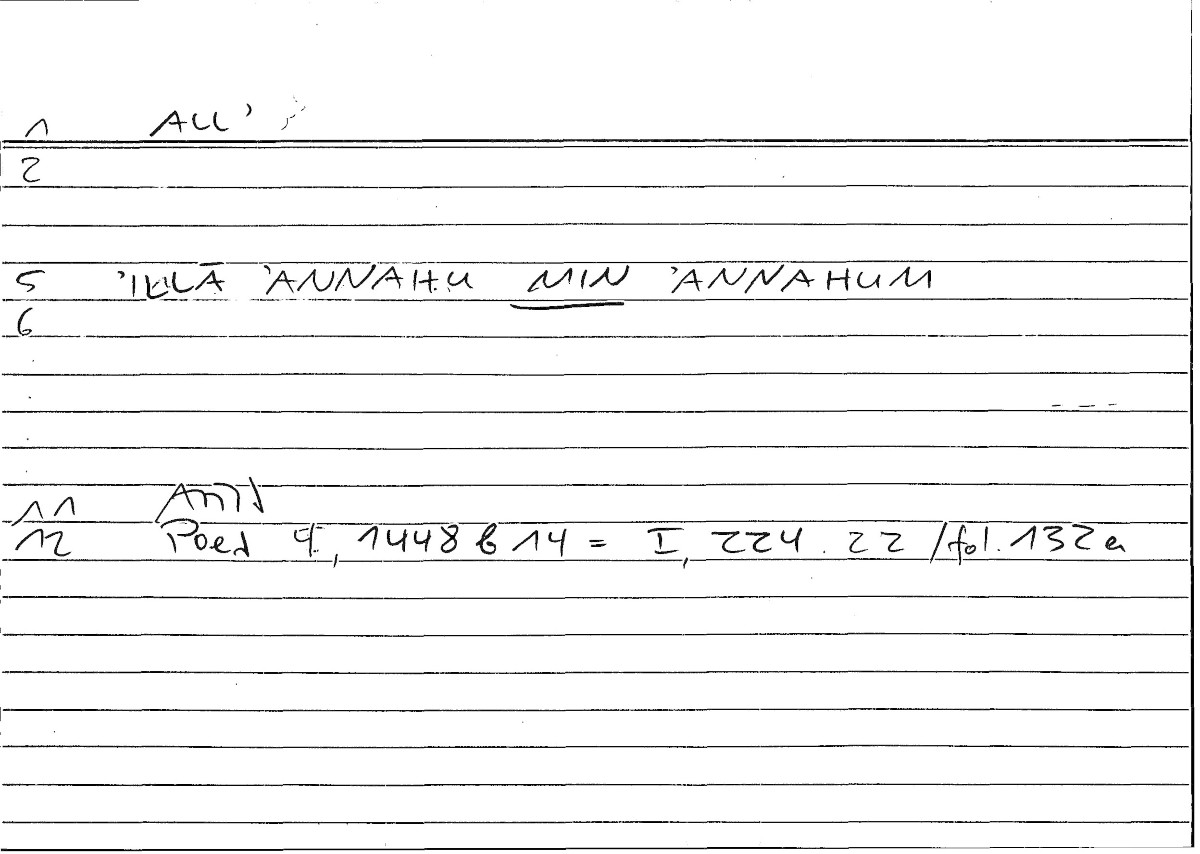 1 ALL'
2
5 'ILLĀ 'ANNAHU MIN 'ANNAHUM
6
11
12 Poet 4, 1448 b 14 = I, 224. 22 / fol. 132a